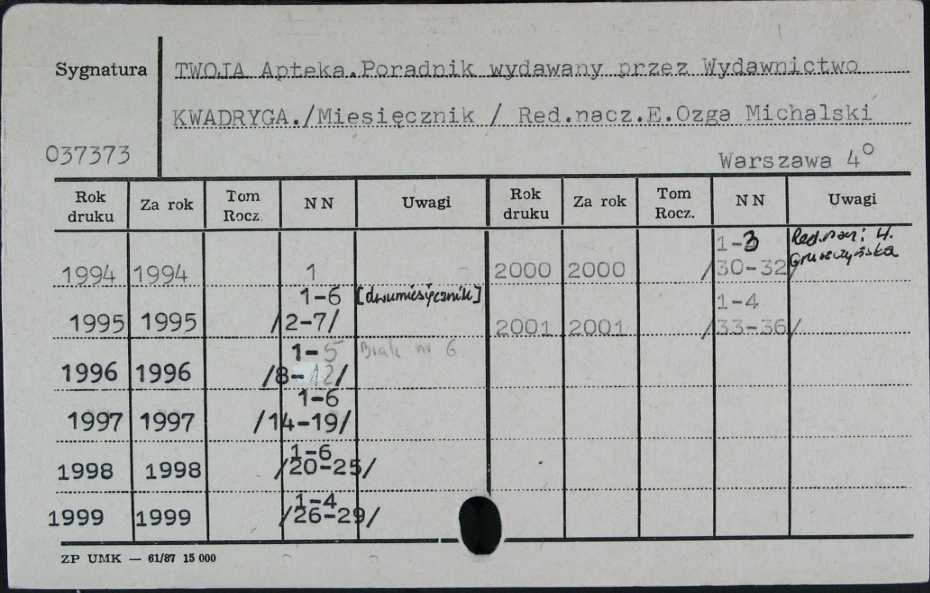 Sygnatura
TWOJA Apteka.Poradnik wydawany przez Wydawnictwo
KWADRYGA./Miesięcznik / Red.nacz.E.Ozga Michalski
037373
Warszawa 4°
Rok druku Za rok Tom Rocz. NN Uwagi Rok druku Za rok Tom Rocz. NN Uwagi
1994 1994 1 2000 2000 1-3 /30-32/ Red.nacz: H. Gruszczyńska
1995 1995 1-6 /2-7/ [dwumiesięcznik] 2001 2001 1-4 /33-36/
1996 1996 1-5 /8-12/ Brak nr 6
1997 1997 1-6 /14-19/
1998 1998 1-6 /20-25/
1999 1999 1-4 /26-29/
ZP UMK — 61/87 15 000